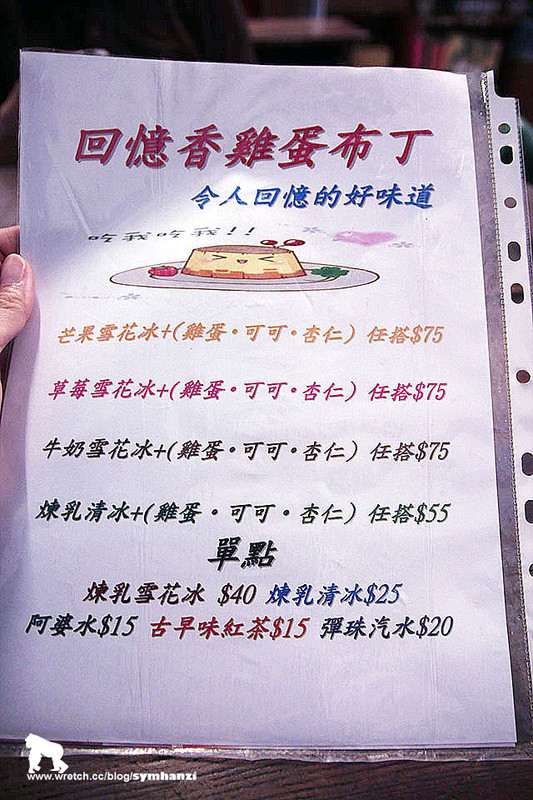 回憶香雞蛋布丁
令人回憶的好味道
吃我吃我!!
芒果雪花冰+(雞蛋·可可·杏仁) 任搭$75
草莓雪花冰+(雞蛋·可可·杏仁) 任搭$75
牛奶雪花冰+(雞蛋·可可·杏仁) 任搭$75
煉乳清冰+(雞蛋·可可·杏仁) 任搭$55
單點
煉乳雪花冰 $40 煉乳清冰$25
阿婆水$15 古早味紅茶$15 彈珠汽水$20
www.wretch.cc/blog/symhanzi